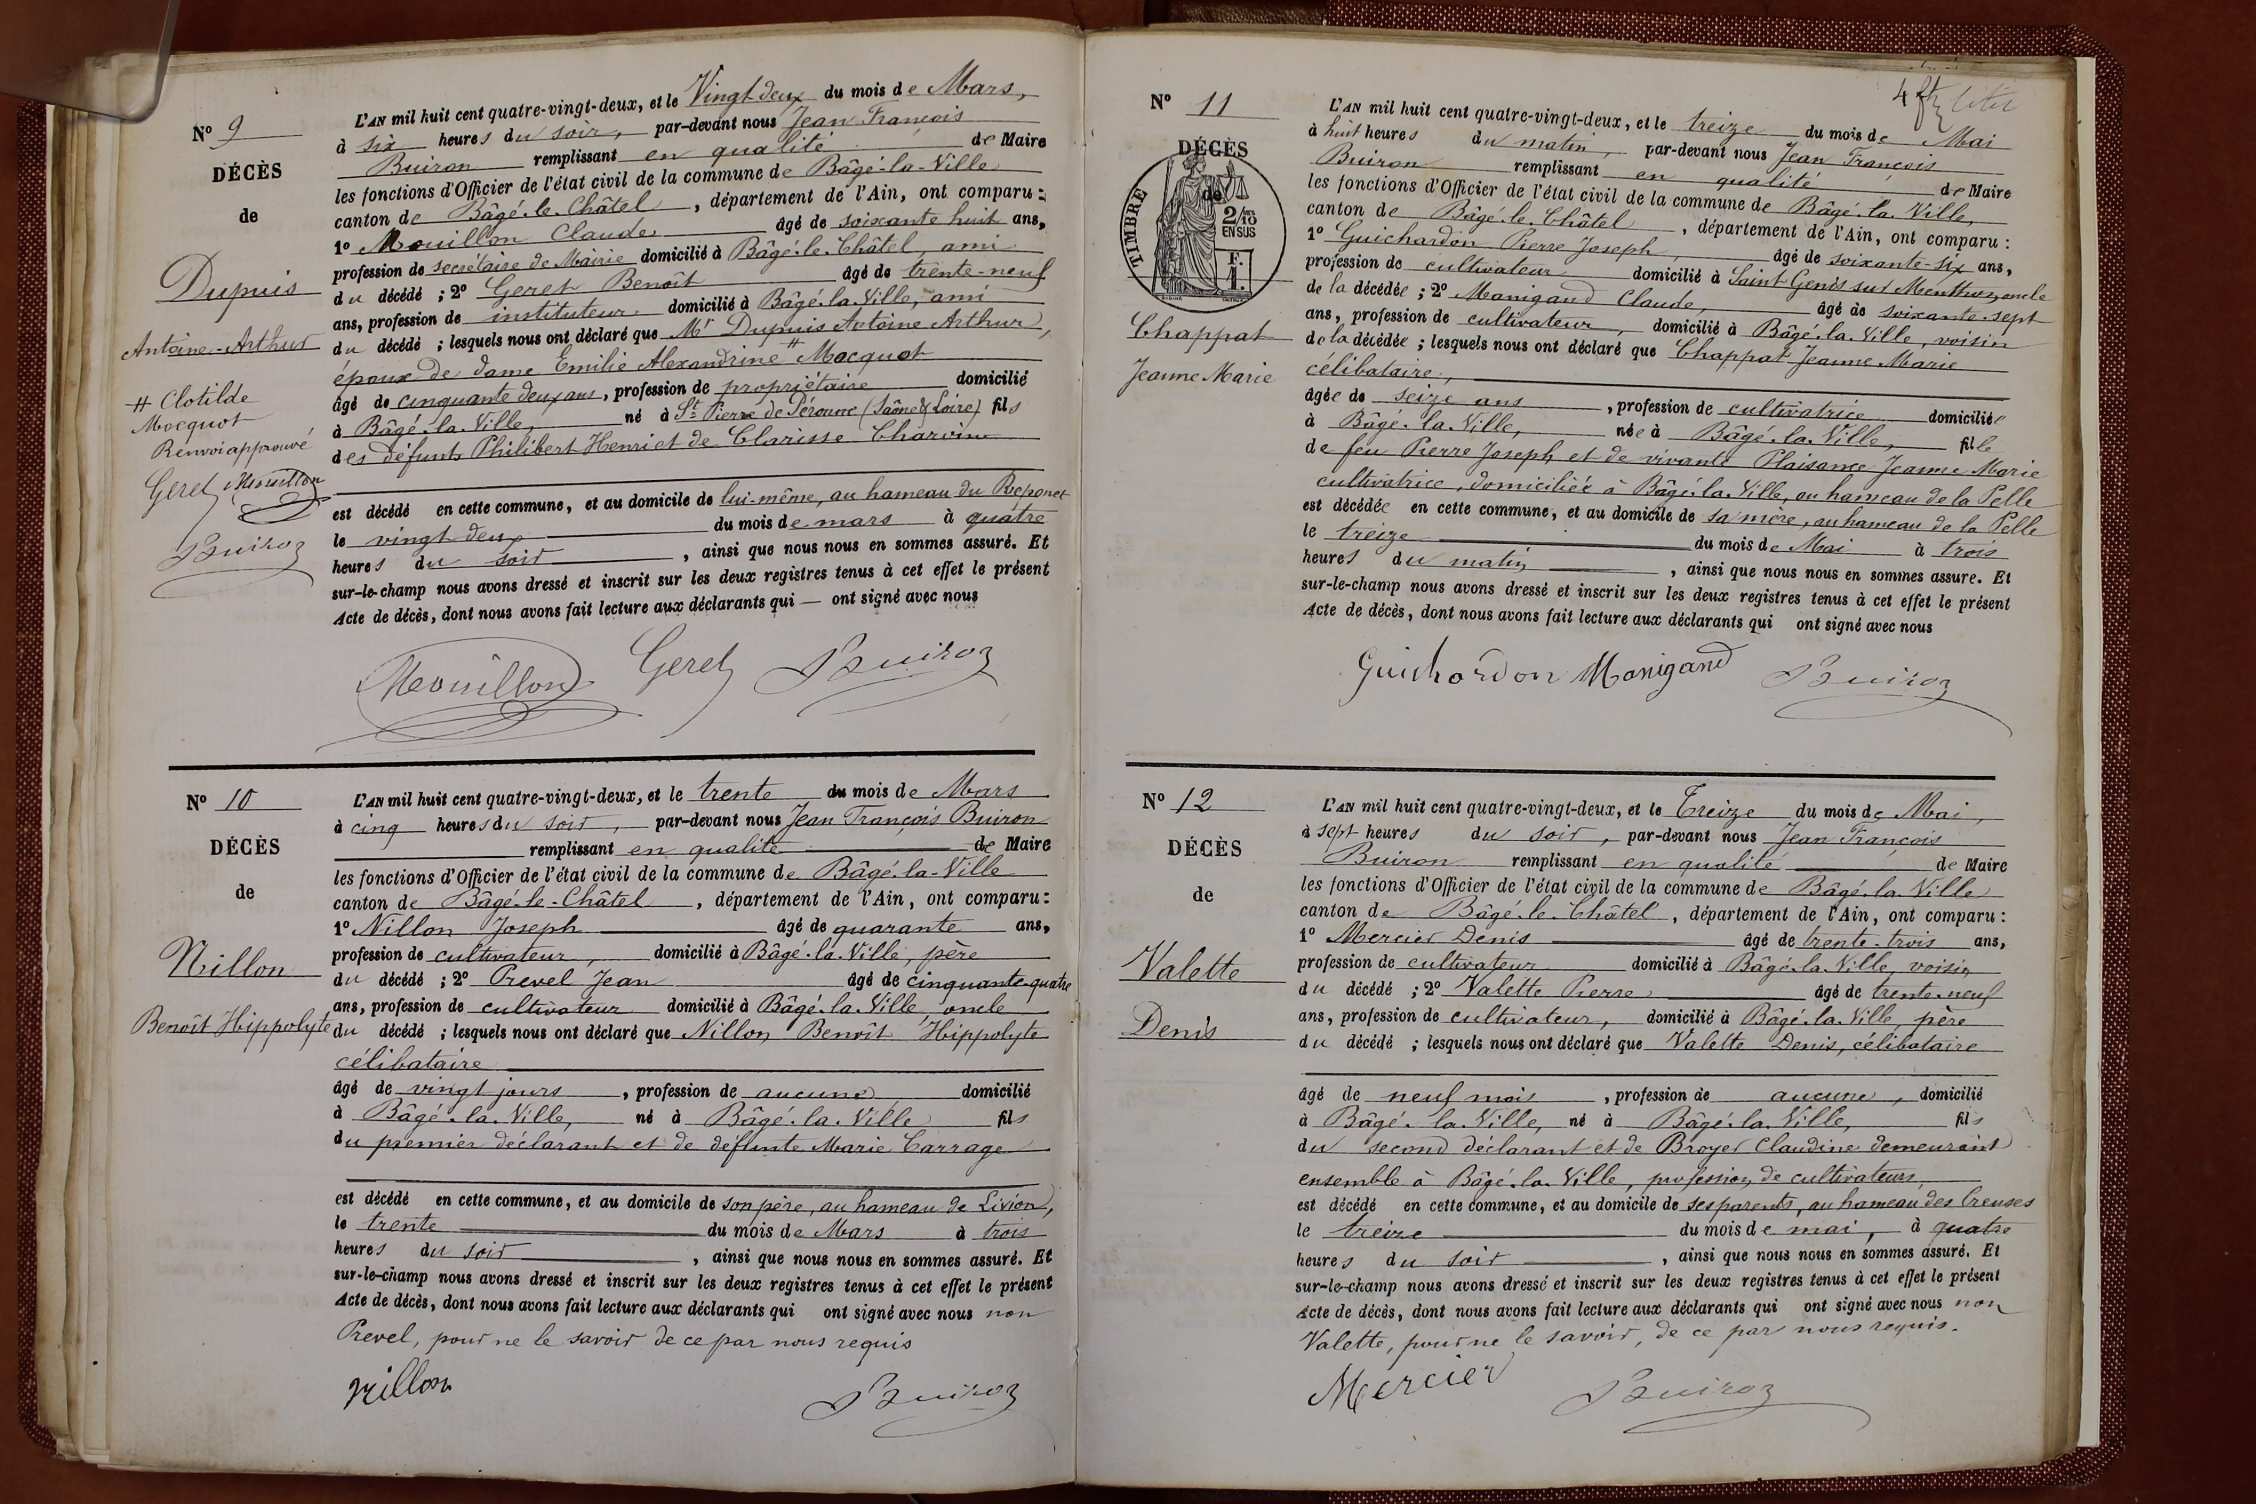 Nº 9
DÉCÈS
de
Dupuis
Antoine-Arthur
# Clotilde
Mocquot
Renvoi approuvé
Geret Mouillon
Buiron
L'AN mil huit cent quatre-vingt-deux, et le Vingt deux du mois de Mars,
à six heures du soir, par-devant nous Jean François
Buiron remplissant en qualité de Maire
les fonctions d'Officier de l'état civil de la commune de Bâgé-la-Ville
canton de Bâgé-le-Châtel, département de l'Ain, ont comparu :
1º Mouillon Claude âgé de soixante huit ans,
profession de secrétaire de Mairie domicilié à Bâgé-le-Châtel, ami
du décédé ; 2º Geret Benoît âgé de trente-neuf
ans, profession de instituteur domicilié à Bâgé-la-Ville, ami
du décédé ; lesquels nous ont déclaré que Mr Dupuis Antoine Arthur,
époux de dame Emilie Alexandrine # Mocquot
âgé de cinquante deux ans, profession de propriétaire domicilié
à Bâgé-la-Ville, né à St Pierre de Péronne (Saône & Loire) fils
des défunts Philibert Henri et de Clarisse Charvin
est décédé en cette commune, et au domicile de lui-même, au hameau du Reponet
le vingt deux du mois de mars à quatre
heures du soir, ainsi que nous nous en sommes assuré. Et
sur-le-champ nous avons dressé et inscrit sur les deux registres tenus à cet effet le présent
Acte de décès, dont nous avons fait lecture aux déclarants qui — ont signé avec nous
Mouillon Geret Buiron
Nº 10
DÉCÈS
de
Nillon
Benoît Hippolyte
L'AN mil huit cent quatre-vingt-deux, et le trente du mois de Mars
à cinq heures du soir, par-devant nous Jean François Buiron
remplissant en qualité de Maire
les fonctions d'Officier de l'état civil de la commune de Bâgé-la-Ville
canton de Bâgé-le-Châtel, département de l'Ain, ont comparu :
1º Nillon Joseph âgé de quarante ans,
profession de cultivateur, domicilié à Bâgé-la-Ville, père
du décédé ; 2º Prevel Jean âgé de cinquante-quatre
ans, profession de cultivateur domicilié à Bâgé-la-Ville, oncle
du décédé ; lesquels nous ont déclaré que Nillon Benoît Hippolyte
célibataire
âgé de vingt jours, profession de aucune domicilié
à Bâgé-la-Ville, né à Bâgé-la-Ville fils
du premier déclarant et de défunte Marie Carrage
est décédé en cette commune, et au domicile de son père, au hameau de Livion,
le trente du mois de Mars à trois
heures du soir, ainsi que nous nous en sommes assuré. Et
sur-le-champ nous avons dressé et inscrit sur les deux registres tenus à cet effet le présent
Acte de décès, dont nous avons fait lecture aux déclarants qui ont signé avec nous non
Prevel, pour ne le savoir de ce par nous requis
Nillon Buiron
4
Nº 11
DÉCÈS
de
TIMBRE
2/10
EN SUS
F.
1.
Chappat
Jeanne Marie
L'AN mil huit cent quatre-vingt-deux, et le treize du mois de Mai
à huit heures du matin, par-devant nous Jean François
Buiron remplissant en qualité de Maire
les fonctions d'Officier de l'état civil de la commune de Bâgé-la-Ville,
canton de Bâgé-le-Châtel, département de l'Ain, ont comparu :
1º Guichardon Pierre Joseph, âgé de soixante-six ans,
profession de cultivateur domicilié à Saint Genis sur Menthon, oncle
de la décédée ; 2º Manigand Claude, âgé de soixante-sept
ans, profession de cultivateur, domicilié à Bâgé-la-Ville, voisin
de la décédée ; lesquels nous ont déclaré que Chappat Jeanne Marie
célibataire,
âgée de seize ans, profession de cultivatrice domiciliée
à Bâgé-la-Ville, née à Bâgé-la-Ville, fille
de feu Pierre Joseph et de vivante Plaisance Jeanne Marie
cultivatrice, domiciliée à Bâgé-la-Ville, au hameau de la Pelle
est décédée en cette commune, et au domicile de sa mère, au hameau de la Pelle
le treize du mois de Mai à trois
heures du matin, ainsi que nous nous en sommes assuré. Et
sur-le-champ nous avons dressé et inscrit sur les deux registres tenus à cet effet le présent
Acte de décès, dont nous avons fait lecture aux déclarants qui ont signé avec nous
Guichardon Manigand Buiron
Nº 12
DÉCÈS
de
Valette
Denis
L'AN mil huit cent quatre-vingt-deux, et le Treize du mois de Mai,
à sept heures du soir, par-devant nous Jean François
Buiron remplissant en qualité de Maire
les fonctions d'Officier de l'état civil de la commune de Bâgé-la-Ville
canton de Bâgé-le-Châtel, département de l'Ain, ont comparu :
1º Mercier Denis âgé de trente-trois ans,
profession de cultivateur domicilié à Bâgé-la-Ville, voisin
du décédé ; 2º Valette Pierre âgé de trente-neuf
ans, profession de cultivateur, domicilié à Bâgé-la-Ville, père
du décédé ; lesquels nous ont déclaré que Valette Denis, célibataire
âgé de neuf mois, profession de aucune, domicilié
à Bâgé-la-Ville, né à Bâgé-la-Ville, fils
du second déclarant et de Broyer Claudine demeurant
ensemble à Bâgé-la-Ville, profession de cultivateurs,
est décédé en cette commune, et au domicile de ses parents, au hameau des Creuses
le treize du mois de mai, à quatre
heures du soir, ainsi que nous nous en sommes assuré. Et
sur-le-champ nous avons dressé et inscrit sur les deux registres tenus à cet effet le présent
Acte de décès, dont nous avons fait lecture aux déclarants qui ont signé avec nous non
Valette, pour ne le savoir, de ce par nous requis.
Mercier Buiron